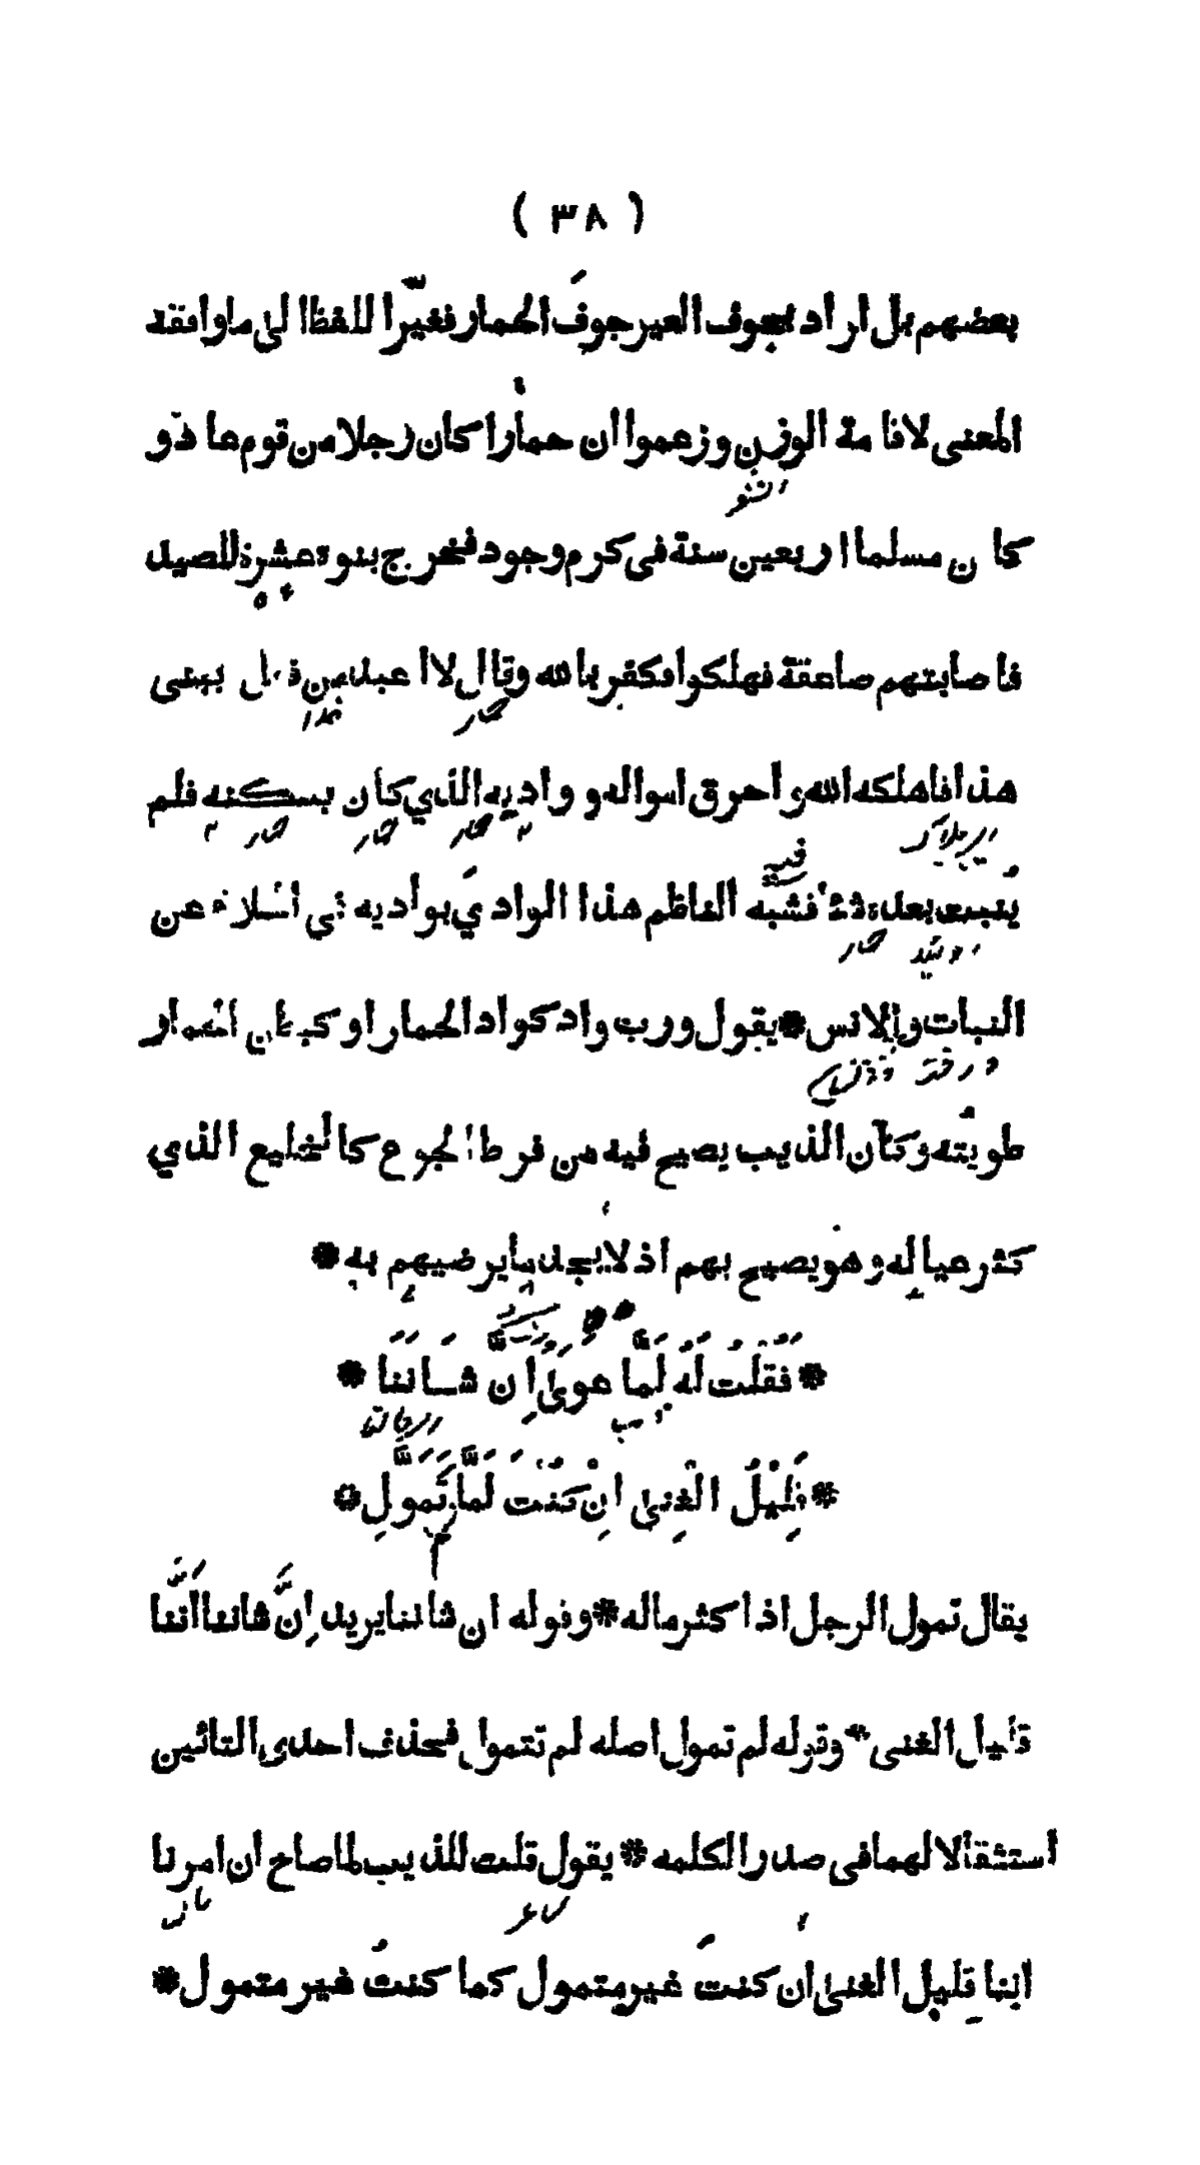 ( ٣٨ )
بعضهم بل اراد بجوف العير جوفَ الحمار فغيّرا اللفظ الى ما وافقه
المعنى لاقامة الوزن وزعموا ان حمارا كان رجلا من قوم عاد و
كان مسلما اربعين سنة فى كرم وجود فخرج بنوه عشرة للصيد
فاصابتهم صاعقة فهلكوا فكفر بالله وقال لا اعبد من فعل ببنى
هذا فاهلكه الله واحرق امواله و واديه الذي كان يسكنه فلم
يُنبت بعده شئ فشبه الناظم هذا الواديَ بواديه فى الخلاء عن
النبات والانس * يقول ورب واد كواد الحمار او كبطن الحمار
طويتُه وكأن الذيب يصيح فيه من فرط الجوع كالخليع الذي
كثر عياله وهو يصيح بهم اذ لا يجد ما يرضيهم به *
* فَقُلْتُ لَهُ لَمَّا عَوَىٰ اِنَّ شَاْنَنَا *
* قَلِيْلُ الْغِنىٰ اِنْ كُنْتَ لَمَّا تَمَوَّلِ *
يقال تمول الرجل اذا كثر ماله * وقوله ان شاننا يريد اِنَّ شاننا اَنَّنا
قليل الغنى * وقوله لم تمول اصله لم تتمول فحذف احدى التائين
استثقالا لهما فى صدر الكلمه * يقول قلت للذيب لما صاح ان امرنا
اننا قليل الغنى ان كنتَ غير متمول كما كنتُ غير متمول *